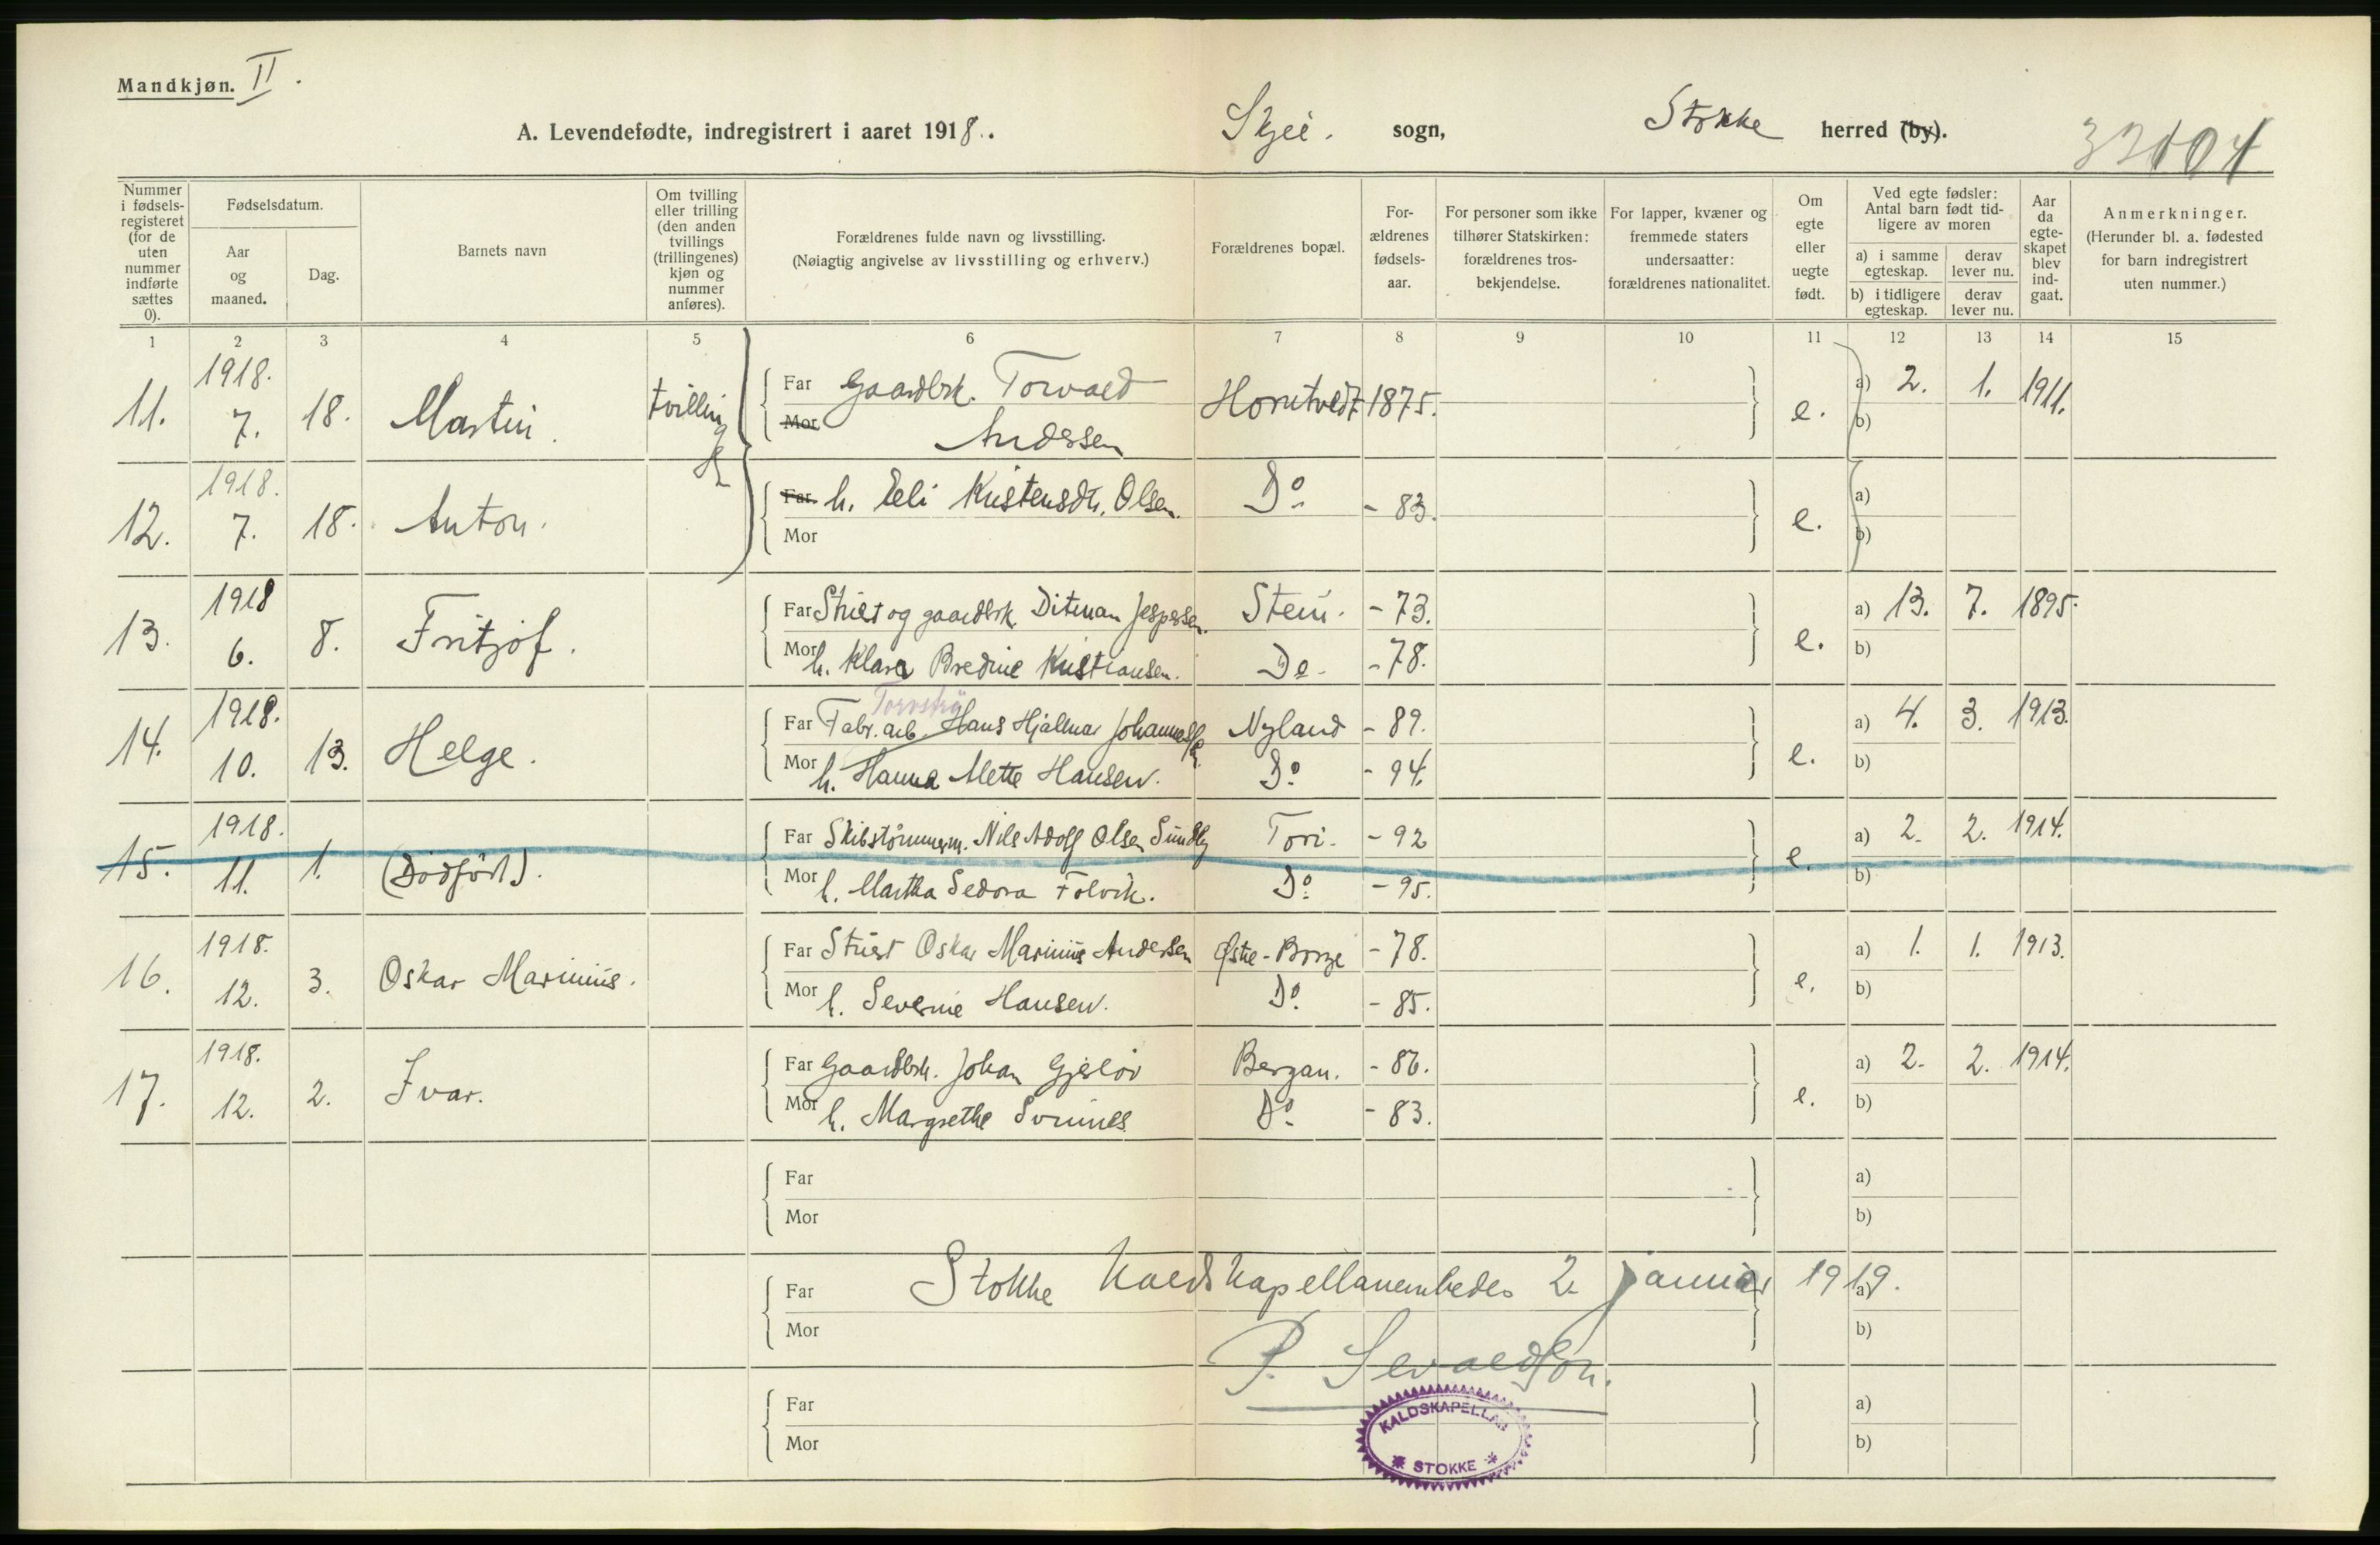 Mandkjøn. II.
A. Levendefødte, indregistrert i aaret 1918. Skjee. sogn, Stokke herred (by).
Nummer i fødsels-registeret (for de uten nummer indførte sættes 0).
Fødselsdatum.
Aar og maaned.
Dag.
Barnets navn
Om tvilling eller trilling (den anden tvillings (trillingenes) kjøn og nummer anføres).
Forældrenes fulde navn og livsstilling.
(Nøiagtig angivelse av livsstilling og erhverv.)
Forældrenes bopæl.
For-ældrenes fødsels-aar.
For personer som ikke tilhører Statskirken: forældrenes tros-bekjendelse.
For lapper, kvæner og fremmede staters undersaatter: forældrenes nationalitet.
Om egte eller uegte født.
Ved egte fødsler: Antal barn født tid-ligere av moren
a) i samme egteskap.
derav lever nu.
b) i tidligere egteskap.
derav lever nu.
Aar da egte-skapet blev ind-gaat.
Anmerkninger.
(Herunder bl. a. fødested for barn indregistrert uten nummer.)
1 2 3 4 5 6 7 8 9 10 11 12 13 14 15
11. 1918. 7. 18. Martin. tvilling Far Gaardbrk. Torvald Horntvedt 1875. e. a) 2. 1. 1911.
Mor Andersen b)
12. 1918. 7. 18. Anton. Far h. Eeli Kristensdtr. Olsen. Do - 83. e. a)
Mor b)
13. 1918 6. 8. Fritjof. Far og gaardbrk. Ditman Jespersen. Stein. - 73. e. a) 13. 7. 1895.
Mor h. Klara Bredine Kristiansen. Do - 78. b)
14. 1918. 10. 13. Helge. Far Fabr. arb. Hans Hjalmar Johannessen Nyland - 89. e. a) 4. 3. 1913.
Mor h. Hanna Mette Hansen. Do - 94. b)
15. 1918. 11. 1. (Dødfødt). Far Skibstømmerm. Nils Adolf Olsen Sundby - 92 e. a) 2. 2. 1914.
Mor h. Martha Sedora Do - 95. b)
16. 1918. 12. 3. Oskar Marinius. Far Oskar Marinius Andersen Østre-Borge - 78. e. a) 1. 1. 1913.
Mor h. Severine Hansen. Do - 85. b)
17. 1918. 12. 2. Ivar. Far Gaardbrk. Johan Gjerløv Bergan. - 86. e. a) 2. 2. 1914.
Mor h. Margrethe Do - 83. b)
Far a)
Mor b)
Far Stokke Kaldskapellanembede 2 januar 1919. a)
Mor b)
P. Sevaldson.
Far a)
Mor b)
KALDSKAPELLAN
* STOKKE *